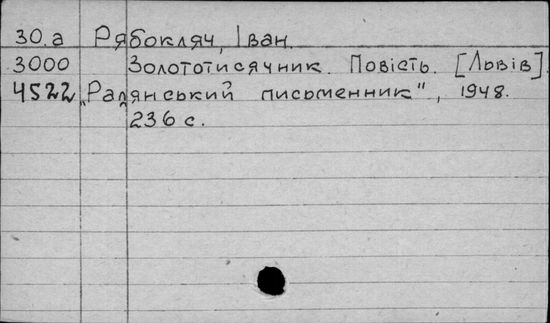 30.а Рябокляч, Іван.
3000 Золототисячник. Повість. [Львів].
4522 „Радянський письменник", 1948.
236 с.